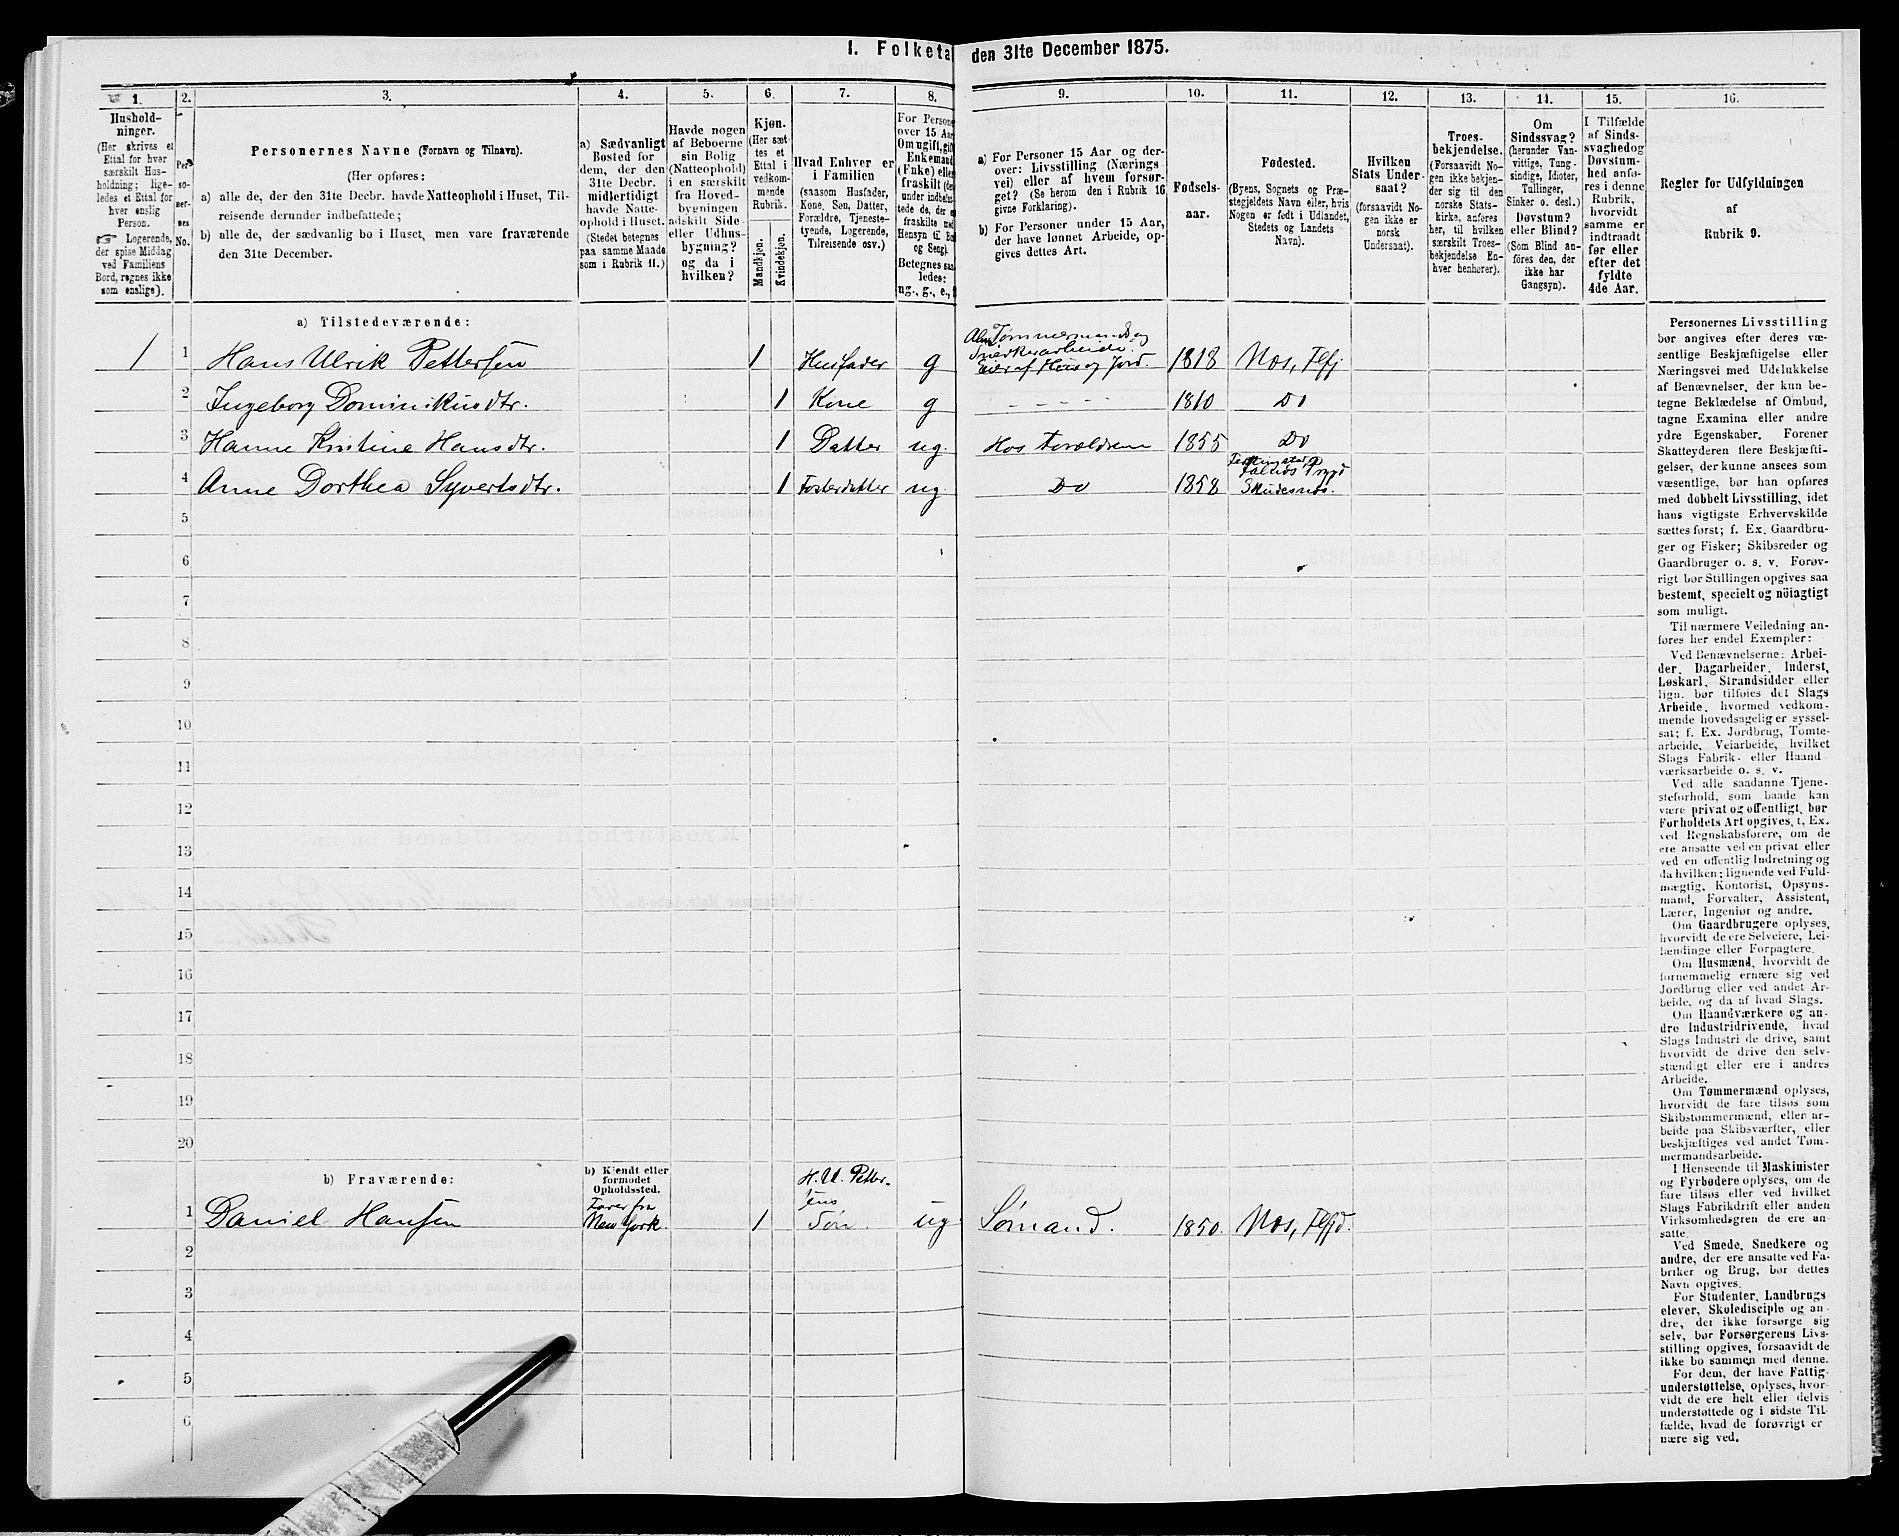 1. Folketa den 31te December 1875.
1. 2. 3. 4. 5. 6. 7. 8. 9. 10. 11. 12. 13. 14. 15. 16.
Hushold-
ninger.
(Her skrives et
Ettal for hver
særskilt Hus-
holdning; lige-
ledes et Ettal for
hver enslig
Person.
☞ Logerende,
der spise Middag
ved Familiens
Bord, regnes ikke
som enslige).
Per-
so-
ner-
nes
No.
Personernes Navne (Fornavn og Tilnavn).
(Her opføres:
a) alle de, der den 31te Decbr. havde Natteophold i Huset, Til-
reisende derunder indbefattede;
b) alle de, der sædvanlig bo i Huset, men vare fraværende
den 31te December.
a) Sædvanligt
Bosted for
dem, der den
31te Decbr.
midlertidigt
havde Natte-
ophold i Huset.
(Stedet betegnes
paa samme Maade
som i Rubrik 11.)
Havde nogen
af Beboerne
sin Bolig
(Natteophold)
i en særskilt
fra Hoved-
bygningen
adskilt Side-
eller Udhus-
bygning?
og da i
hvilken?
Kjøn.
(Her sæt-
tes et
Ettal i
vedkom-
mende
Rubrik.
Mandkjøn.
Kvindekjøn.
Hvad Enhver er
i Familien
(saasom Husfader,
Kone, Søn, Datter,
Forældre, Tjeneste-
tyende, Logerende,
Tilreisende osv.)
For Persone
over 15 Aar
Om ugift, gift
Enkemand
(Enke) eller
fraskilt (de
under indbefat-
tede de, der e
fraskilte med
Hensyn til Bo
og Seng).
Betegnes saa
ledes:
ug., g., e.,
a) For Personer 15 Aar og der-
over: Livsstilling (Nærings
vei) eller af hvem forsør-
get? (Se herom den i Rubrik 16
givne Forklaring).
b) For Personer under 15 Aar,
der have lønnet Arbeide, op-
gives dettes Art.
Fødsels-
aar.
Fødested.
(Byens, Sognets og Præ-
stegjeldets Navn eller, hvis
Nogen er født i Udlandet,
Stedets og Landets
Navn).
Hvilken
Stats Under-
saat?
(forsaavidt No-
gen ikke er
norsk
Undersaat).
Troes-
bekjendelse.
(Forsaavidt No-
gen ikke bekjen-
der sig til den
norske Stats-
kirke, anføres
her, til hvilken
særskilt Troes-
bekjendelse En-
hver henhører).
Om
Sindssvag?
(herunder Van-
vittige, Tung-
sindige, Idioter,
Tullinger,
Sinker o. desl.)
Døvstum?
eller Blind?
(Som Blind an-
føres den, der
ikke har
Gangsyn).
I Tilfælde
af Sinds-
svaghed og
Døvstum-
hed anfø-
res i denne
Rubrik,
hvorvidt
samme er
indtraadt
før eller
efter det
fyldte
4de Aar.
Regler for Udfyldningen
af
Rubrik 9.
a) Tilstedeværende:
1 1 Hans Ulrik Pettersen 1 Husfader g Tømmermands og
Snedkerarbeide.
eier af Hus og Jord. 1818 Næs, Flfj
2 Ingeborg Dominikusdtr. 1 Kone g - - - - - 1810 Do
3 Hanne Kristine Hansdtr. 1 Datter ug. Hos Forældrene 1855 Do
4 Anne Dorthea Syvertsdtr. 1 Fosterdatter ug. Do 1858 Skudesnæs.
5
6
7
8
9
10
11
12
13
14
15
16
17
18
19
20
b) Fraværende:
b) Kjendt eller
formodet
Opholdssted.
H. U. Petter-
sens
1 Daniel Hansen Farer fra
New York. 1 Søn. ug Sømand. 1850. Næs, Flfjd.
2
3
4
5
6
Personernes Livsstilling
bør angives efter deres væ-
sentlige Beskjæftigelse eller
Næringsvei med Udelukkelse
af Benævnelser, der kun be-
tegne Beklædelse af Ombud,
tagne Examina eller andre
ydre Egenskaber. Forener
Skatteyderen flere Beskjæfti-
gelser, der kunne ansees som
væsentlige, bør han opføres
med dobbelt Livsstilling, idet
hans vigtigste Erhvervskilde
sættes først; f. Ex. Gaardbru-
ger og Fisker; Skibsreder og
Gaardbruger o. s. v. Forøv-
rigt bør Stillingen opgives saa
bestemt, specielt og nöiagtigt
som muligt.
Til nærmere Veiledning an-
føres her endel Exempler:
Ved Benævnelserne: Arbei-
der, Dagarbeider, Inderst,
Løskarl, Strandsidder eller
lign. bør tilføies det Slags
Arbeide, hvormed vedkom-
mende hovedsagelig er syssel-
sat; f. Ex. Jordbrug, Tomte-
arbeide, Veiarbeide, hvilket
Slags Fabrik- eller Haand-
værksarbeide o. s. v.
Ved alle saadanne Tjene-
steforhold, som baade kan
være privat og offentligt, bør
Forholdets Art opgives, t. Ex.
ved Regnskabsførere, om de
ere ansatte ved en privat eller
ved en offentlig Indretning og
da hvilken; lignende ved Fuld-
mægtig, Kontorist, Opsyns-
mand, Forvalter, Assistent,
Lærer, Ingeniør og andre.
Om Gaardbrugere oplyses,
hvorvidt de ere Selveiere, Lei-
lændinge eller Forpagtere.
Om Husmænd, hvorvidt de
fornemmelig ernære sig ved
Jordbrug eller ved andet Ar-
beide, og da af hvad Slags.
Om Haandværkere og an-
dre Industridrivende, hvad
Slags Industri de drive, samt
hvorvidt de drive den selv-
stændigt eller ere i andres
Arbeide.
Om Tømmermænd oplyses,
hvorvidt de fare tilsøs som
Skibstømmermænd, eller ar-
beide paa Skibsværfter, eller
beskjæftiges ved andet Tøm-
mermandsarbeide.
I Henseende til Maskinister
og Fyrbødere oplyses, om de
fare tilsøs eller ved hvilket
Slags Fabrikdrift eller anden
Virksomhedsgren de ere an-
satte.
Ved Smede, Snedkere og
andre, der ere ansatte ved Fa-
briker og Brug, bør dettes
Navn opgives.
For Studenter, Landbrugs-
elever, Skoledisciple og an-
dre, der ikke forsørge sig
selv, bør Forsørgerens Livs-
stilling opgives, forsaavidt de
ikke bo sammen med denne.
For dem, der have Fattig-
understøttelse, oplyses, hvor-
vidt de ere helt eller delvis
understøttede og i sidste Til-
fælde, hvad de forøvrigt er-
nære sig ved.